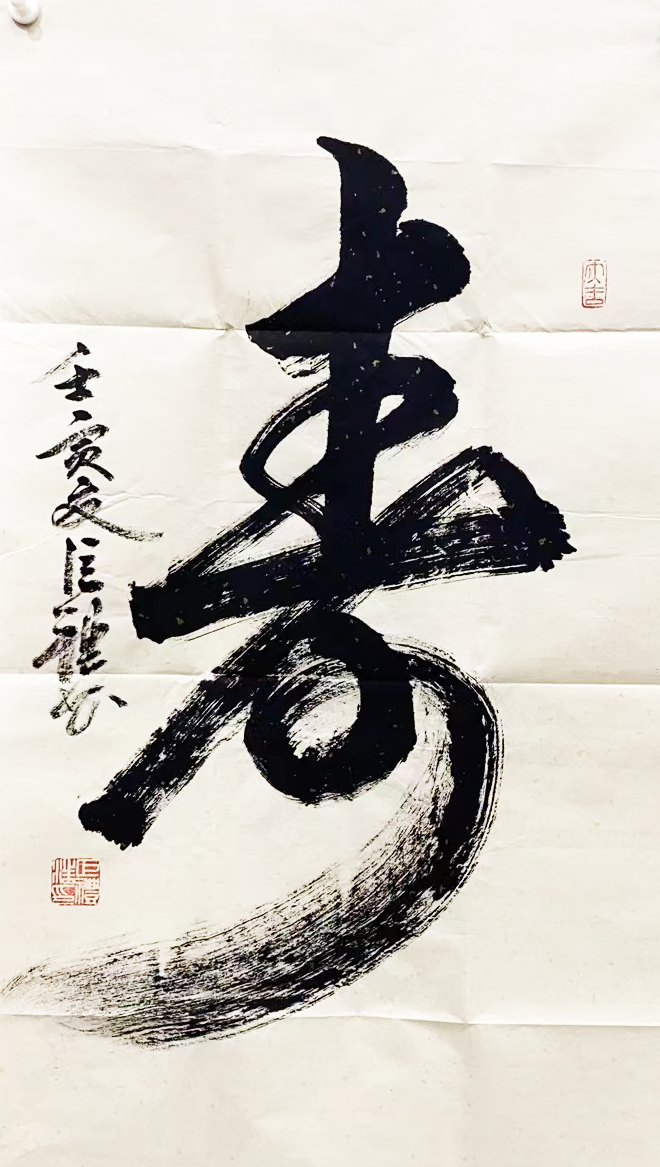 寿
壬寅夏巨禮书